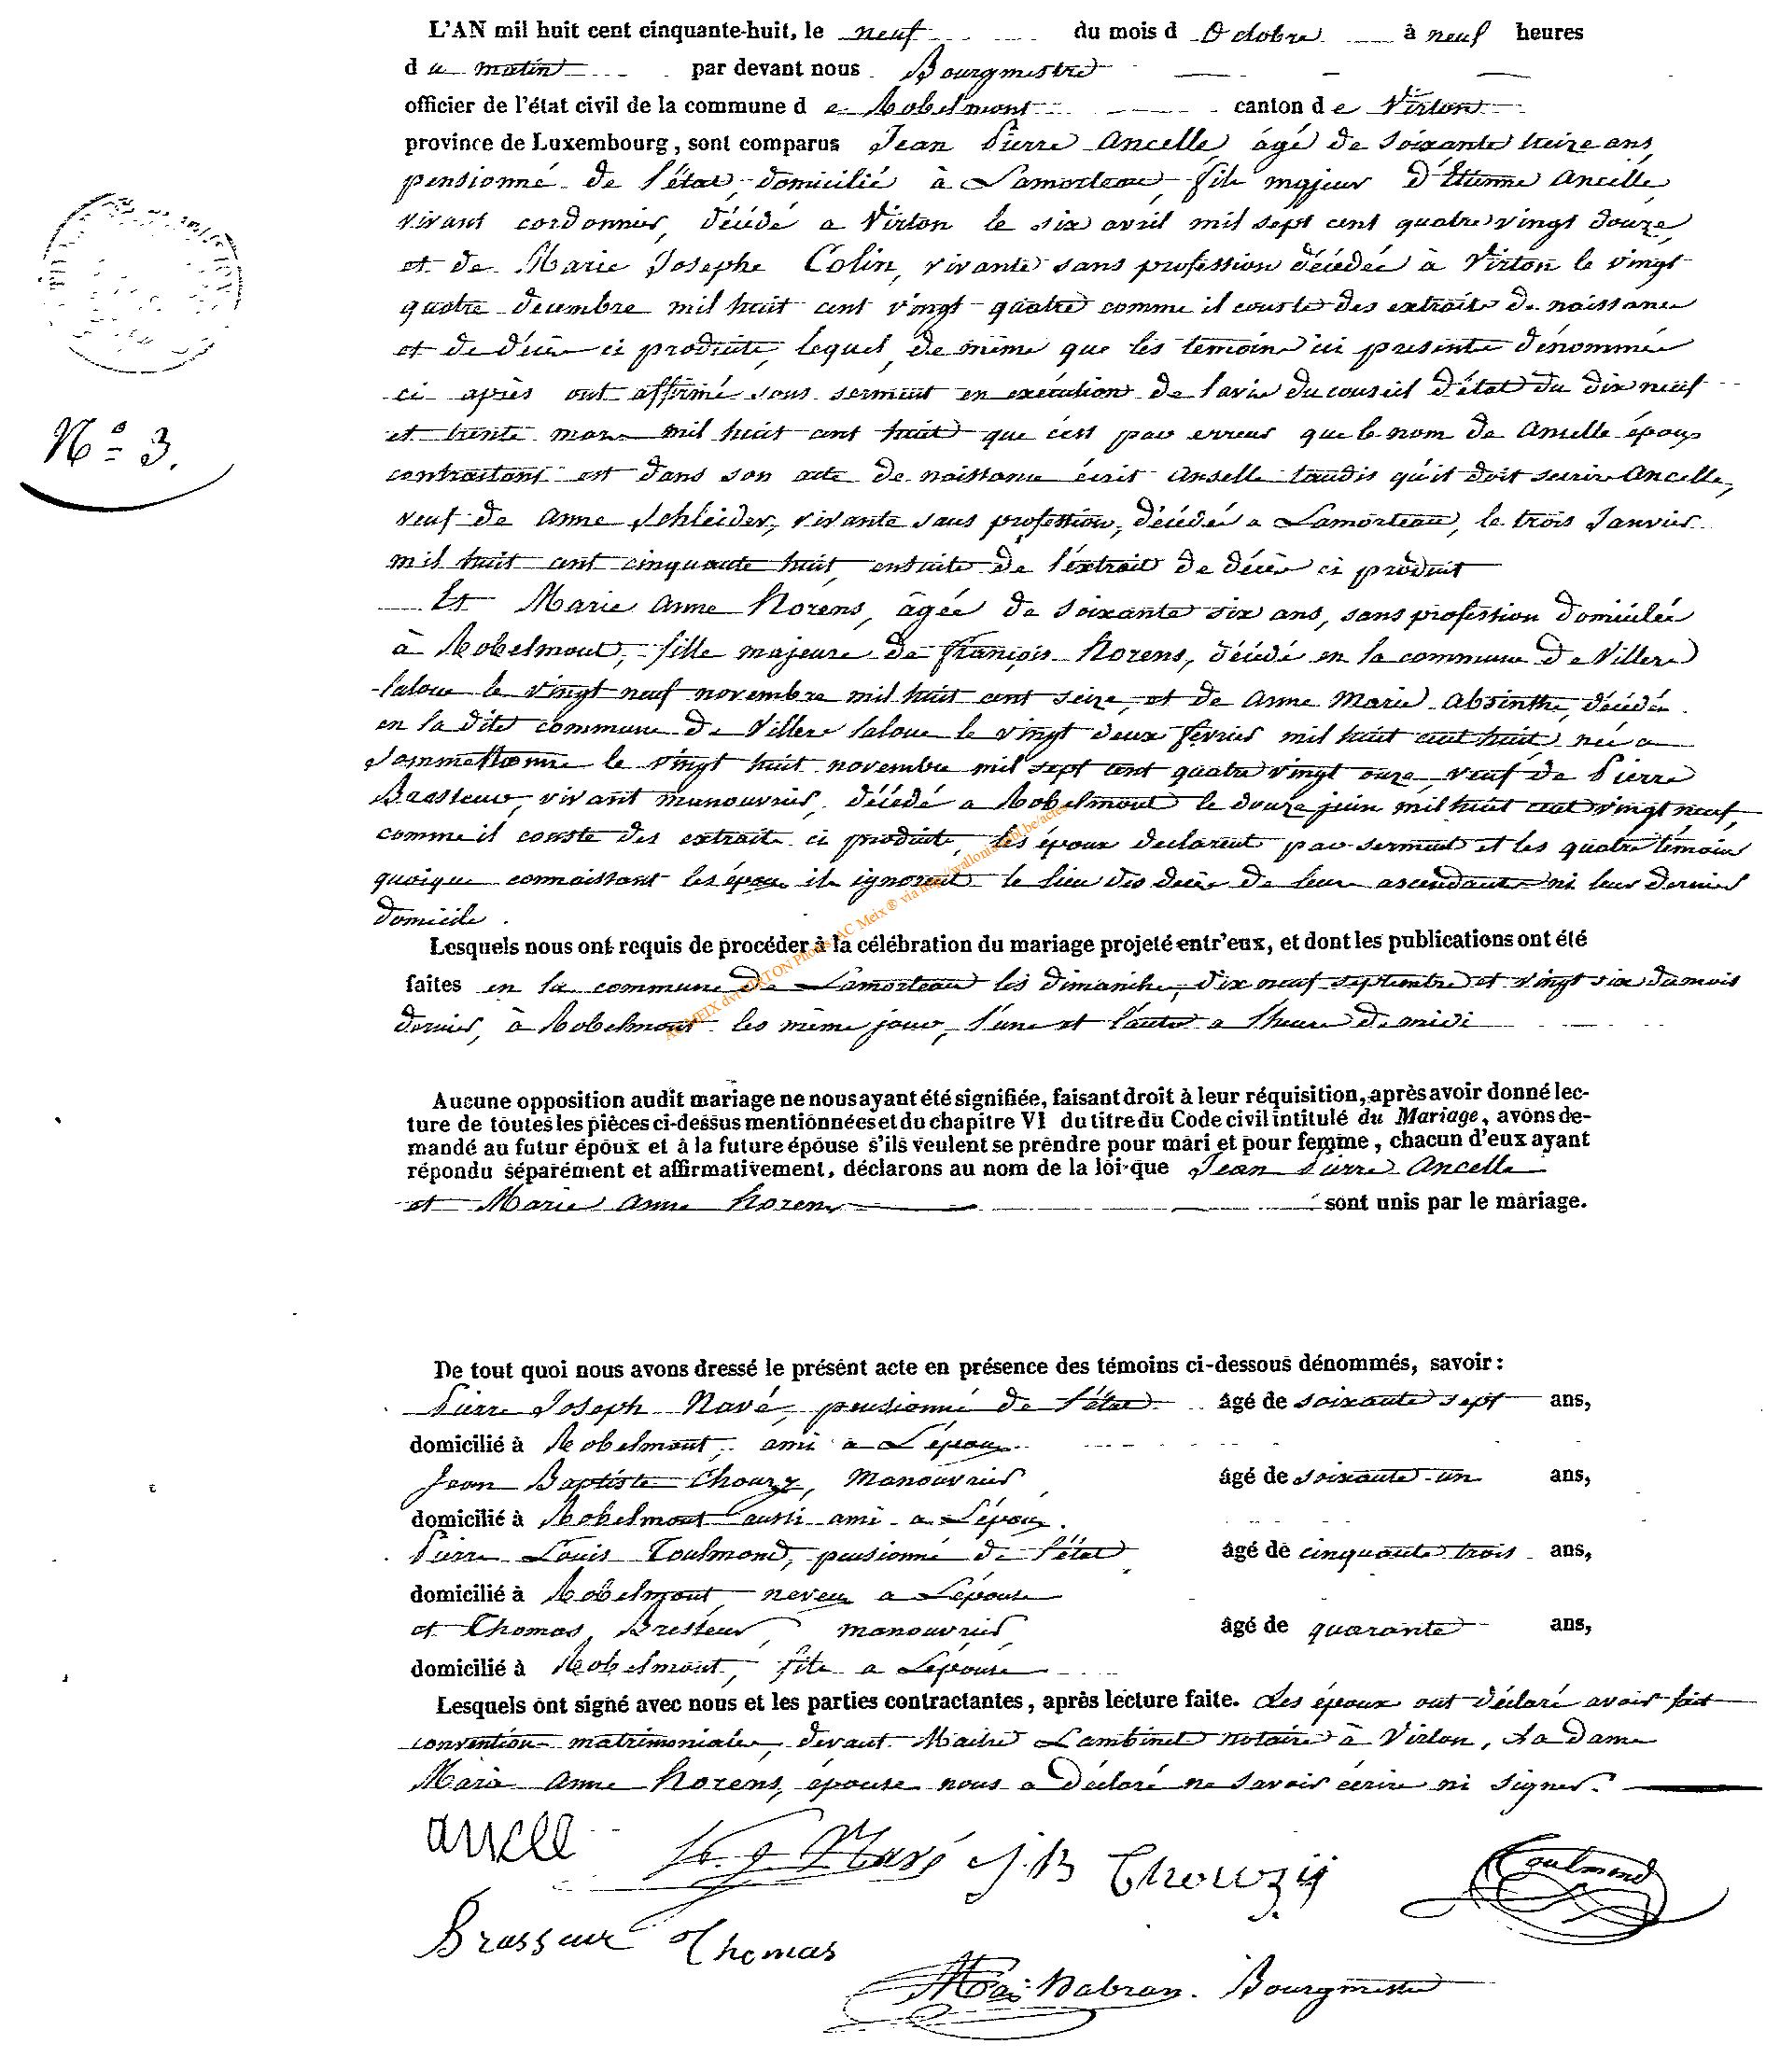 L'AN mil huit cent cinquante-huit, le neuf du mois d Octobre à neuf heures
d u matin par devant nous Bourgmestre
officier de l'état civil de la commune d e Robelmont canton d e Virton
province de Luxembourg, sont comparus Jean Pierre Ancelle, âgé de soixante treize ans,
pensionné de l'état, domicilié à Lamorteau, fils majeur d'Etienne Ancelle,
vivant cordonnier, décédé a Virton le six avril mil sept cent quatre vingt douze,
et de Marie Josephe Colin, vivante sans profession décédée à Virton le vingt
quatre decembre mil huit cent vingt quatre comme il conste des extraits de naissance
et de décès ci produits, lequel, de même que les temoins ici presents dénommés
ci après ont affirmé sous serment en exécution de l'avis du conseil d'état du dix neuf
et trente mars mil huit cent huit que c'est par erreur que le nom de Ancelle époux
contractant est dans son acte de naissance écrit Anselle tandis qu'il doit s'écrire Ancelle,
veuf de Anne Schleider, vivante sans profession, décédée a Lamorteau, le trois Janvier
mil huit cent cinquante huit, ensuite de l'extrait de décès ci produit
Et Marie Anne Norens, âgée de soixante six ans, sans profession domiciliée
à Robelmont, fille majeure de françois Norens, décédé en la commune de Villers
laloue le vingt neuf novembre mil huit cent seize, et de Anne Marie Absinthe, décédée
en la dite commune de Villers laloue le vingt deux février mil huit cent huit, née a
Sommethonne le vingt huit novembre mil sept cent quatre vingt onze, veuve de Pierre
vivant manouvrier, décédé a Robelmont le douze juin mil huit cent vingt neuf,
comme il conste des extraits ci produits, les époux declarent par serment et les quatre témoins
quoique connaissant les époux ils ignorent le lieu des décès de leurs ascendants ni leur dernier
domicile.
Lesquels nous ont requis de procéder à la célébration du mariage projeté entr'eux, et dont les publications ont été
faites en la commune de Lamorteau les dimanche, dix neuf septembre et vingt six du mois
dernier, à Robelmont les même jours, l'une et l'autre a l'heure de midi
Aucune opposition audit mariage ne nous ayant été signifiée, faisant droit à leur réquisition, après avoir donné lec-
ture de toutes les pièces ci-dessus mentionnées et du chapitre VI du titre du Code civil intitulé du Mariage, avons de-
mandé au futur époux et à la future épouse s'ils veulent se prendre pour mari et pour femme, chacun d'eux ayant
répondu séparément et affirmativement, déclarons au nom de la loi que Jean Pierre Ancelle
et Marie Anne Norens sont unis par le mariage.
N° 3.
De tout quoi nous avons dressé le présent acte en présence des témoins ci-dessous dénommés, savoir :
Pierre Joseph Navé, pensionné de l'état âgé de soixante sept ans,
domicilié à Robelmont, ami a L'époux
Jean Baptiste Thouzy, Manouvrier âgé de soixante un ans,
domicilié à Robelmont aussi ami a L'époux.
Pierre Louis Toulmond, pensionné de l'état, âgé de cinquante trois ans,
domicilié à Robelmont, neveu a L'épouse
et Thomas manouvrier, âgé de quarante ans,
domicilié à Robelmont, fils a L'épouse
Lesquels ont signé avec nous et les parties contractantes, après lecture faite. Les époux ont déclaré avoir fait
convention matrimoniale, devant Maitre Lambinet notaire à Virton, La dame
Marie Anne Norens, épouse nous a déclaré ne savoir écrire ni signer.
Ancell Navé J. B Thouzy Toulmond
Brasseur Thomas
Nabran. Bourgmestre